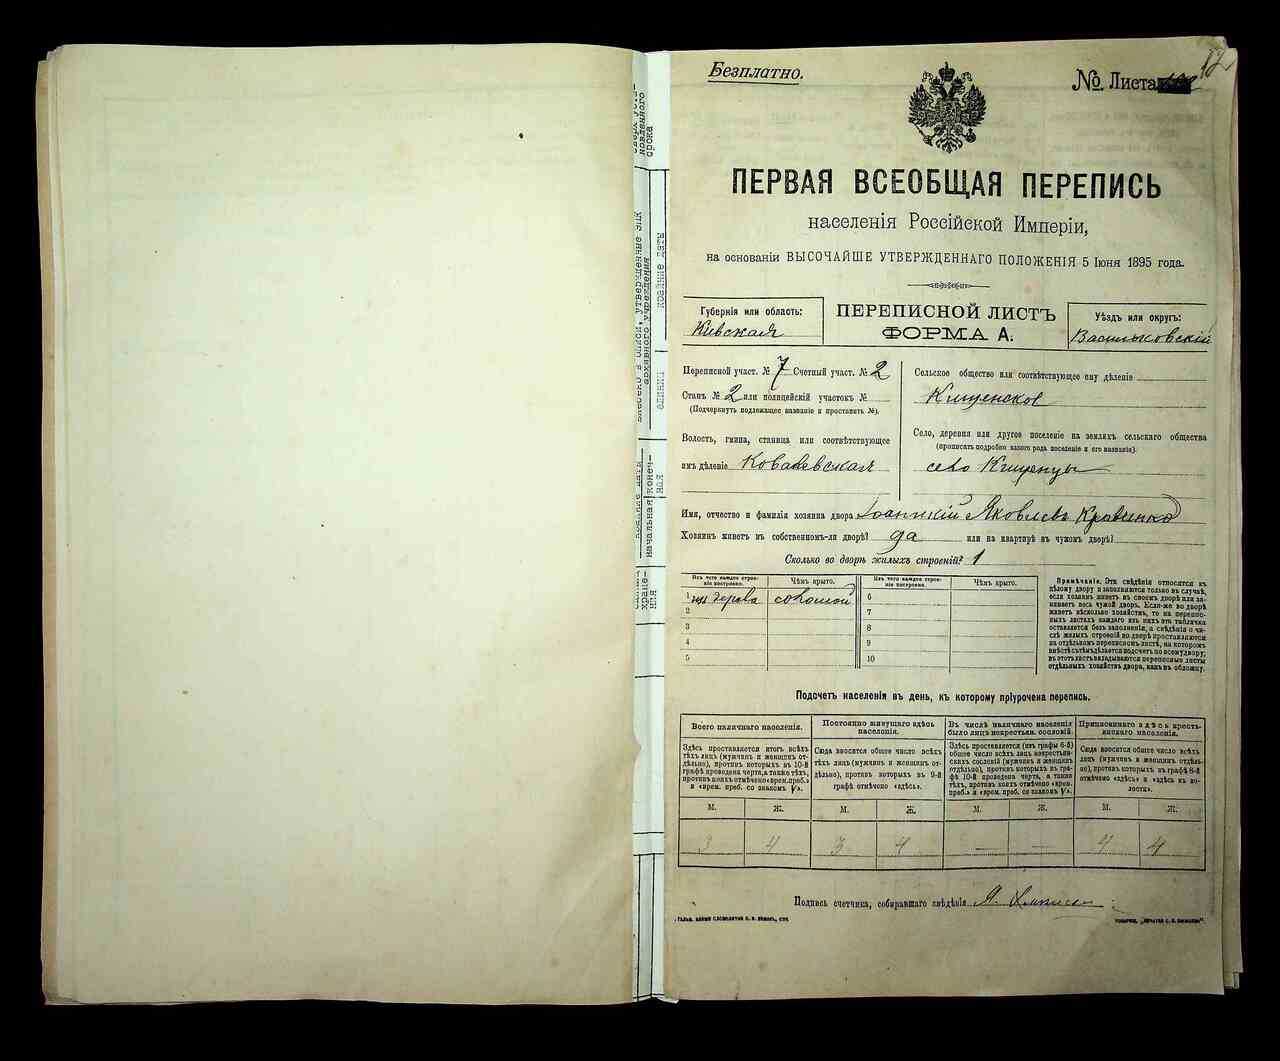 Безплатно.
№. Листа
ПЕРВАЯ ВСЕОБЩАЯ ПЕРЕПИСЬ
населенія Россійской Имперіи,
на основаніи ВЫСОЧАЙШЕ УТВЕРЖДЕННАГО ПОЛОЖЕНІЯ 5 Іюня 1895 года.
Губернія или область:
Киевская
ПЕРЕПИСНОЙ ЛИСТЪ
ФОРМА А.
Уѣздъ или округъ:
Васильковскій
Переписной участ. № 7 Счетный участ. № 2
Станъ № 2 или полицейскій участокъ №
(Подчеркнуть подлежащее названіе и проставить №).
Волость, гмина, станица или соотвѣтствующее
имъ дѣленіе Ковалевская
Сельское общество или соотвѣтствующее ему дѣленіе
Кищенское
Село, деревня или другое поселеніе на земляхъ сельскаго общества
(прописать подробно какого рода поселеніе и его названіе).
село Кищенцы
Имя, отчество и фамилія хозяина двора Іоанникій Яковлевъ Кравченко
Хозяинъ живетъ въ собственномъ-ли дворѣ? да или на квартирѣ въ чужомъ дворѣ?
Сколько во дворѣ жилыхъ строеній? 1
Изъ чего каждое строеніе построено.
Чѣмъ крыто.
Изъ чего каждое строеніе построено.
Чѣмъ крыто.
1 изъ дерева соломой
2
3
4
5
6
7
8
9
10
Примѣчаніе. Эти свѣдѣнія относятся къ
цѣлому двору и заполняются только въ случаѣ,
если хозяинъ живетъ въ своемъ дворѣ или за-
нимаетъ весь чужой дворъ. Если-же во дворѣ
живетъ нѣсколько хозяйствъ, то на перепис-
ныхъ листахъ каждаго изъ нихъ эта табличка
оставляется безъ заполненія, а свѣдѣнія о чи-
слѣ жилыхъ строеній во дворѣ проставляются
на отдѣльномъ переписномъ листѣ, на которомъ
вмѣстѣ съ тѣмъ дѣлается подсчетъ по всему двору;
въ этотъ листъ вкладываются переписные листы
отдѣльныхъ хозяйствъ двора, какъ въ обложку.
Подсчетъ населенія въ день, къ которому пріурочена перепись.
Всего наличнаго населенія.
Здѣсь проставляется итогъ всѣхъ
тѣхъ лицъ (мужчинъ и женщинъ от-
дѣльно), противъ которыхъ въ 10-й
графѣ проведена черта, а также тѣхъ,
противъ коихъ отмѣчено «врем. преб.»
и «врем. преб. со знакомъ V».
Постоянно живущаго здѣсь
населенія.
Сюда вносится общее число всѣхъ
тѣхъ лицъ (мужчинъ и женщинъ от-
дѣльно), противъ которыхъ въ 9-й
графѣ отмѣчено «здѣсь».
Въ числѣ наличнаго населенія
было лицъ некрестьян. сословій.
Здѣсь проставляется (изъ графы 6-й)
общее число всѣхъ лицъ некрестьян-
скихъ сословій (мужчинъ и женщинъ
отдѣльно), противъ которыхъ въ гра-
фѣ 10-й проведена черта, а также
тѣхъ, противъ коихъ отмѣчено «врем.
преб.» и «врем. преб. со знакомъ V».
Приписаннаго здѣсь кресть-
янскаго населенія.
Сюда вносится общее число всѣхъ
лицъ (мужчинъ и женщинъ отдѣль-
но), противъ которыхъ въ графѣ 8-й
отмѣчено «здѣсь» и «здѣсь въ во-
лости».
М. Ж. М. Ж. М. Ж. М. Ж.
3 4 3 4 — — 4 4
Подпись счетчика, собиравшаго свѣдѣнія